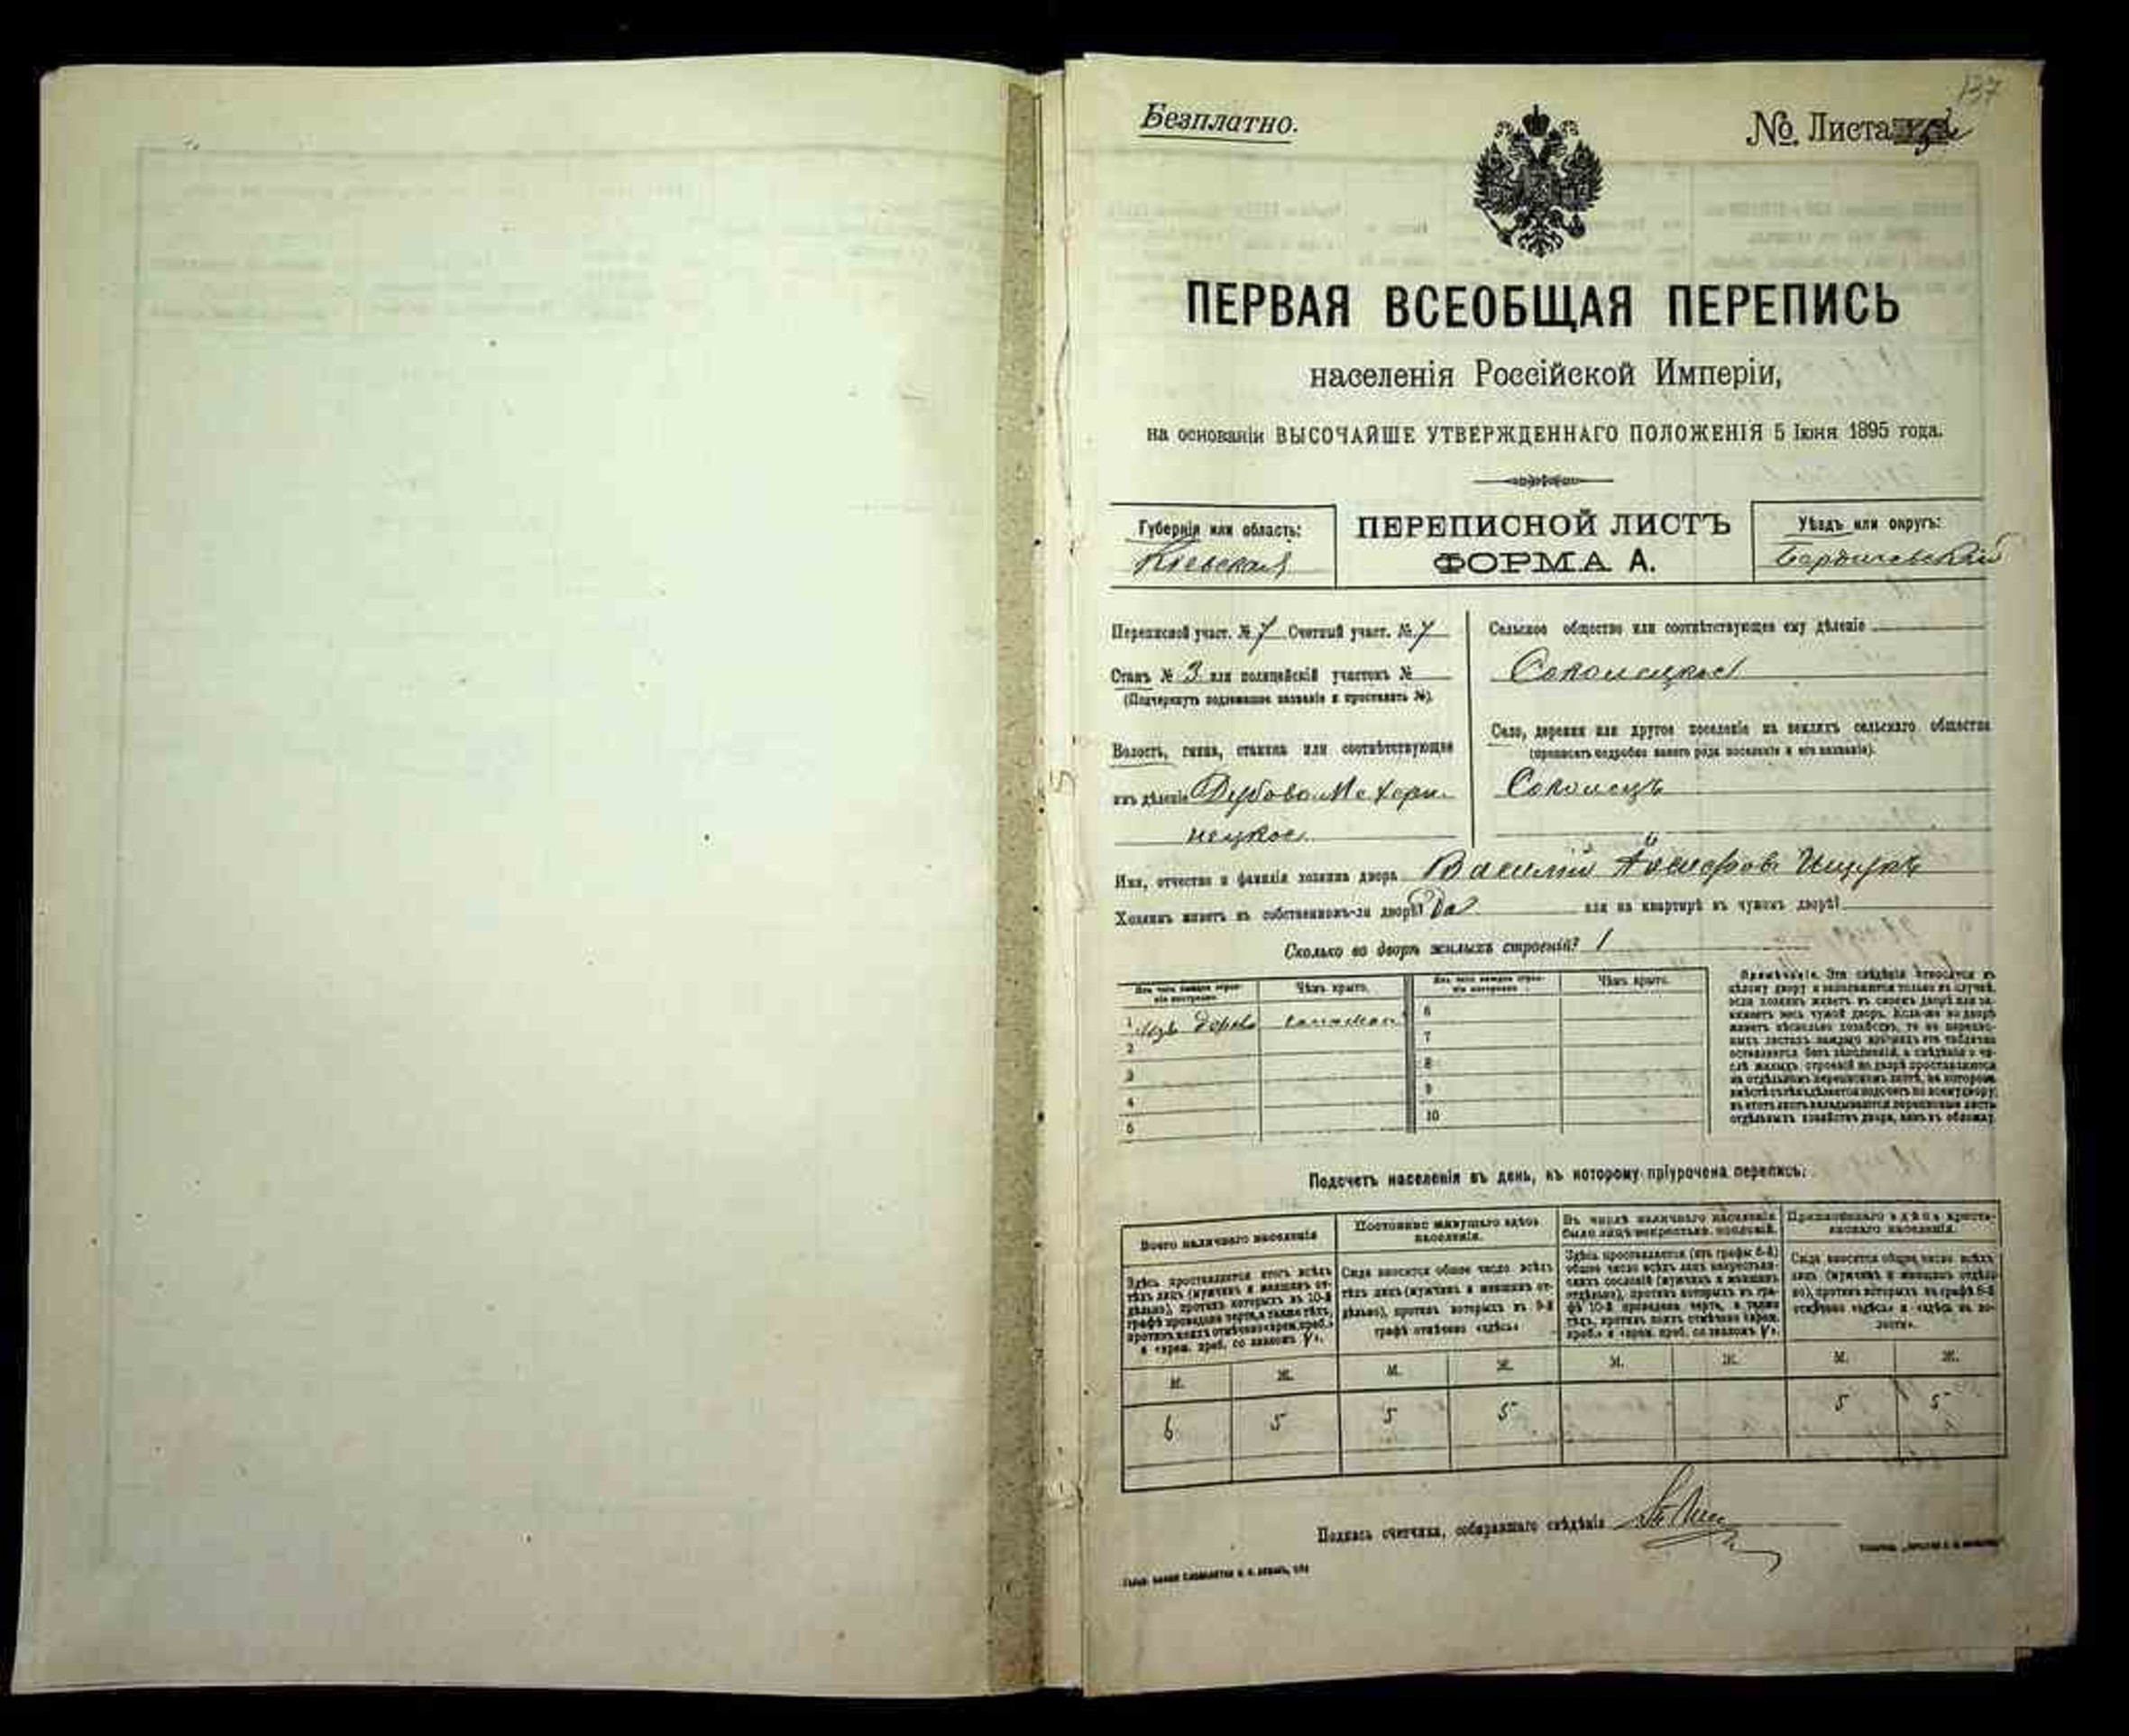 137
Безплатно.
№ Листа
ПЕРВАЯ ВСЕОБЩАЯ ПЕРЕПИСЬ
населенія Россійской Имперіи,
на основаніи ВЫСОЧАЙШЕ УТВЕРЖДЕННАГО ПОЛОЖЕНІЯ 5 Іюня 1895 года.
Губернія или область:
Кіевская
ПЕРЕПИСНОЙ ЛИСТЪ
ФОРМА А.
Уѣздъ или округъ:
Бердичевскій
Переписной участ. № 7 Счетный участ. № 7
Станъ № 3 или полицейскій участокъ №
(Подчеркнуть подлежащее названіе и проставить №).
Волость, гмина, станица или соотвѣтствующее
имъ дѣленіе Дубово-Махари-
нецкое
Сельское общество или соотвѣтствующее ему дѣленіе
Соколецкое
Село, деревня или другое поселеніе на земляхъ сельскаго общества
(прописать подробно какого рода поселеніе и его названіе).
Соколецъ
Имя, отчество и фамилія хозяина двора Василій Іосифовъ Ищукъ
Хозяинъ живетъ въ собственномъ-ли дворѣ? Да или на квартирѣ въ чужомъ дворѣ?
Сколько во дворѣ жилыхъ строеній? 1
Изъ чего каждое строе-
ніе построено.
Чѣмъ крыто.
Изъ чего каждое строе-
ніе построено.
Чѣмъ крыто.
1 Изъ дерева соломой 6
2 7
3 8
4 9
5 10
Примѣчаніе. Эти свѣдѣнія относятся къ
цѣлому двору и заполняются только въ случаѣ,
если хозяинъ живетъ въ своемъ дворѣ или за-
нимаетъ весь чужой дворъ. Если-же во дворѣ
живетъ нѣсколько хозяйствъ, то на перепис-
ныхъ листахъ каждаго изъ нихъ эта табличка
оставляется безъ заполненія, а свѣдѣнія о чи-
слѣ жилыхъ строеній во дворѣ проставляются
на отдѣльномъ переписномъ листѣ, на которомъ
вмѣстѣ съ тѣмъ дѣлается подсчетъ по всему двору;
въ этотъ листъ вкладываются переписные листы
отдѣльныхъ хозяйствъ двора, какъ въ обложку.
Подсчетъ населенія въ день, къ которому пріурочена перепись.
Всего наличнаго населенія
Постоянно живущаго здѣсь
населенія.
Въ числѣ наличнаго населенія
было лицъ некрестьянск. сословій.
Приписаннаго здѣсь кресть-
янскаго населенія.
Здѣсь проставляется итогъ всѣхъ
тѣхъ лицъ (мужчинъ и женщинъ от-
дѣльно), противъ которыхъ въ 10-й
графѣ проведена черта, а также тѣхъ,
противъ коихъ отмѣчено «врем. преб.»
и «врем. преб. со знакомъ V».
Сюда вносится общее число всѣхъ
тѣхъ лицъ (мужчинъ и женщинъ от-
дѣльно), противъ которыхъ въ 9-й
графѣ отмѣчено «здѣсь»
Здѣсь проставляется (изъ графы 6-й)
общее число всѣхъ лицъ некрестьян-
скихъ сословій (мужчинъ и женщинъ
отдѣльно), противъ которыхъ въ гра-
фѣ 10-й проведена черта, а также
тѣхъ, противъ коихъ отмѣчено «врем.
преб.» и «врем. преб. со знакомъ V».
Сюда вносится общее число всѣхъ
лицъ (мужчинъ и женщинъ отдѣль-
но), противъ которыхъ въ графѣ 8-й
отмѣчено «здѣсь» и «здѣсь въ во-
лости».
М. Ж. М. Ж. М. Ж. М. Ж.
6 5 5 5 5 5
Подпись счетчика, собиравшаго свѣдѣнія